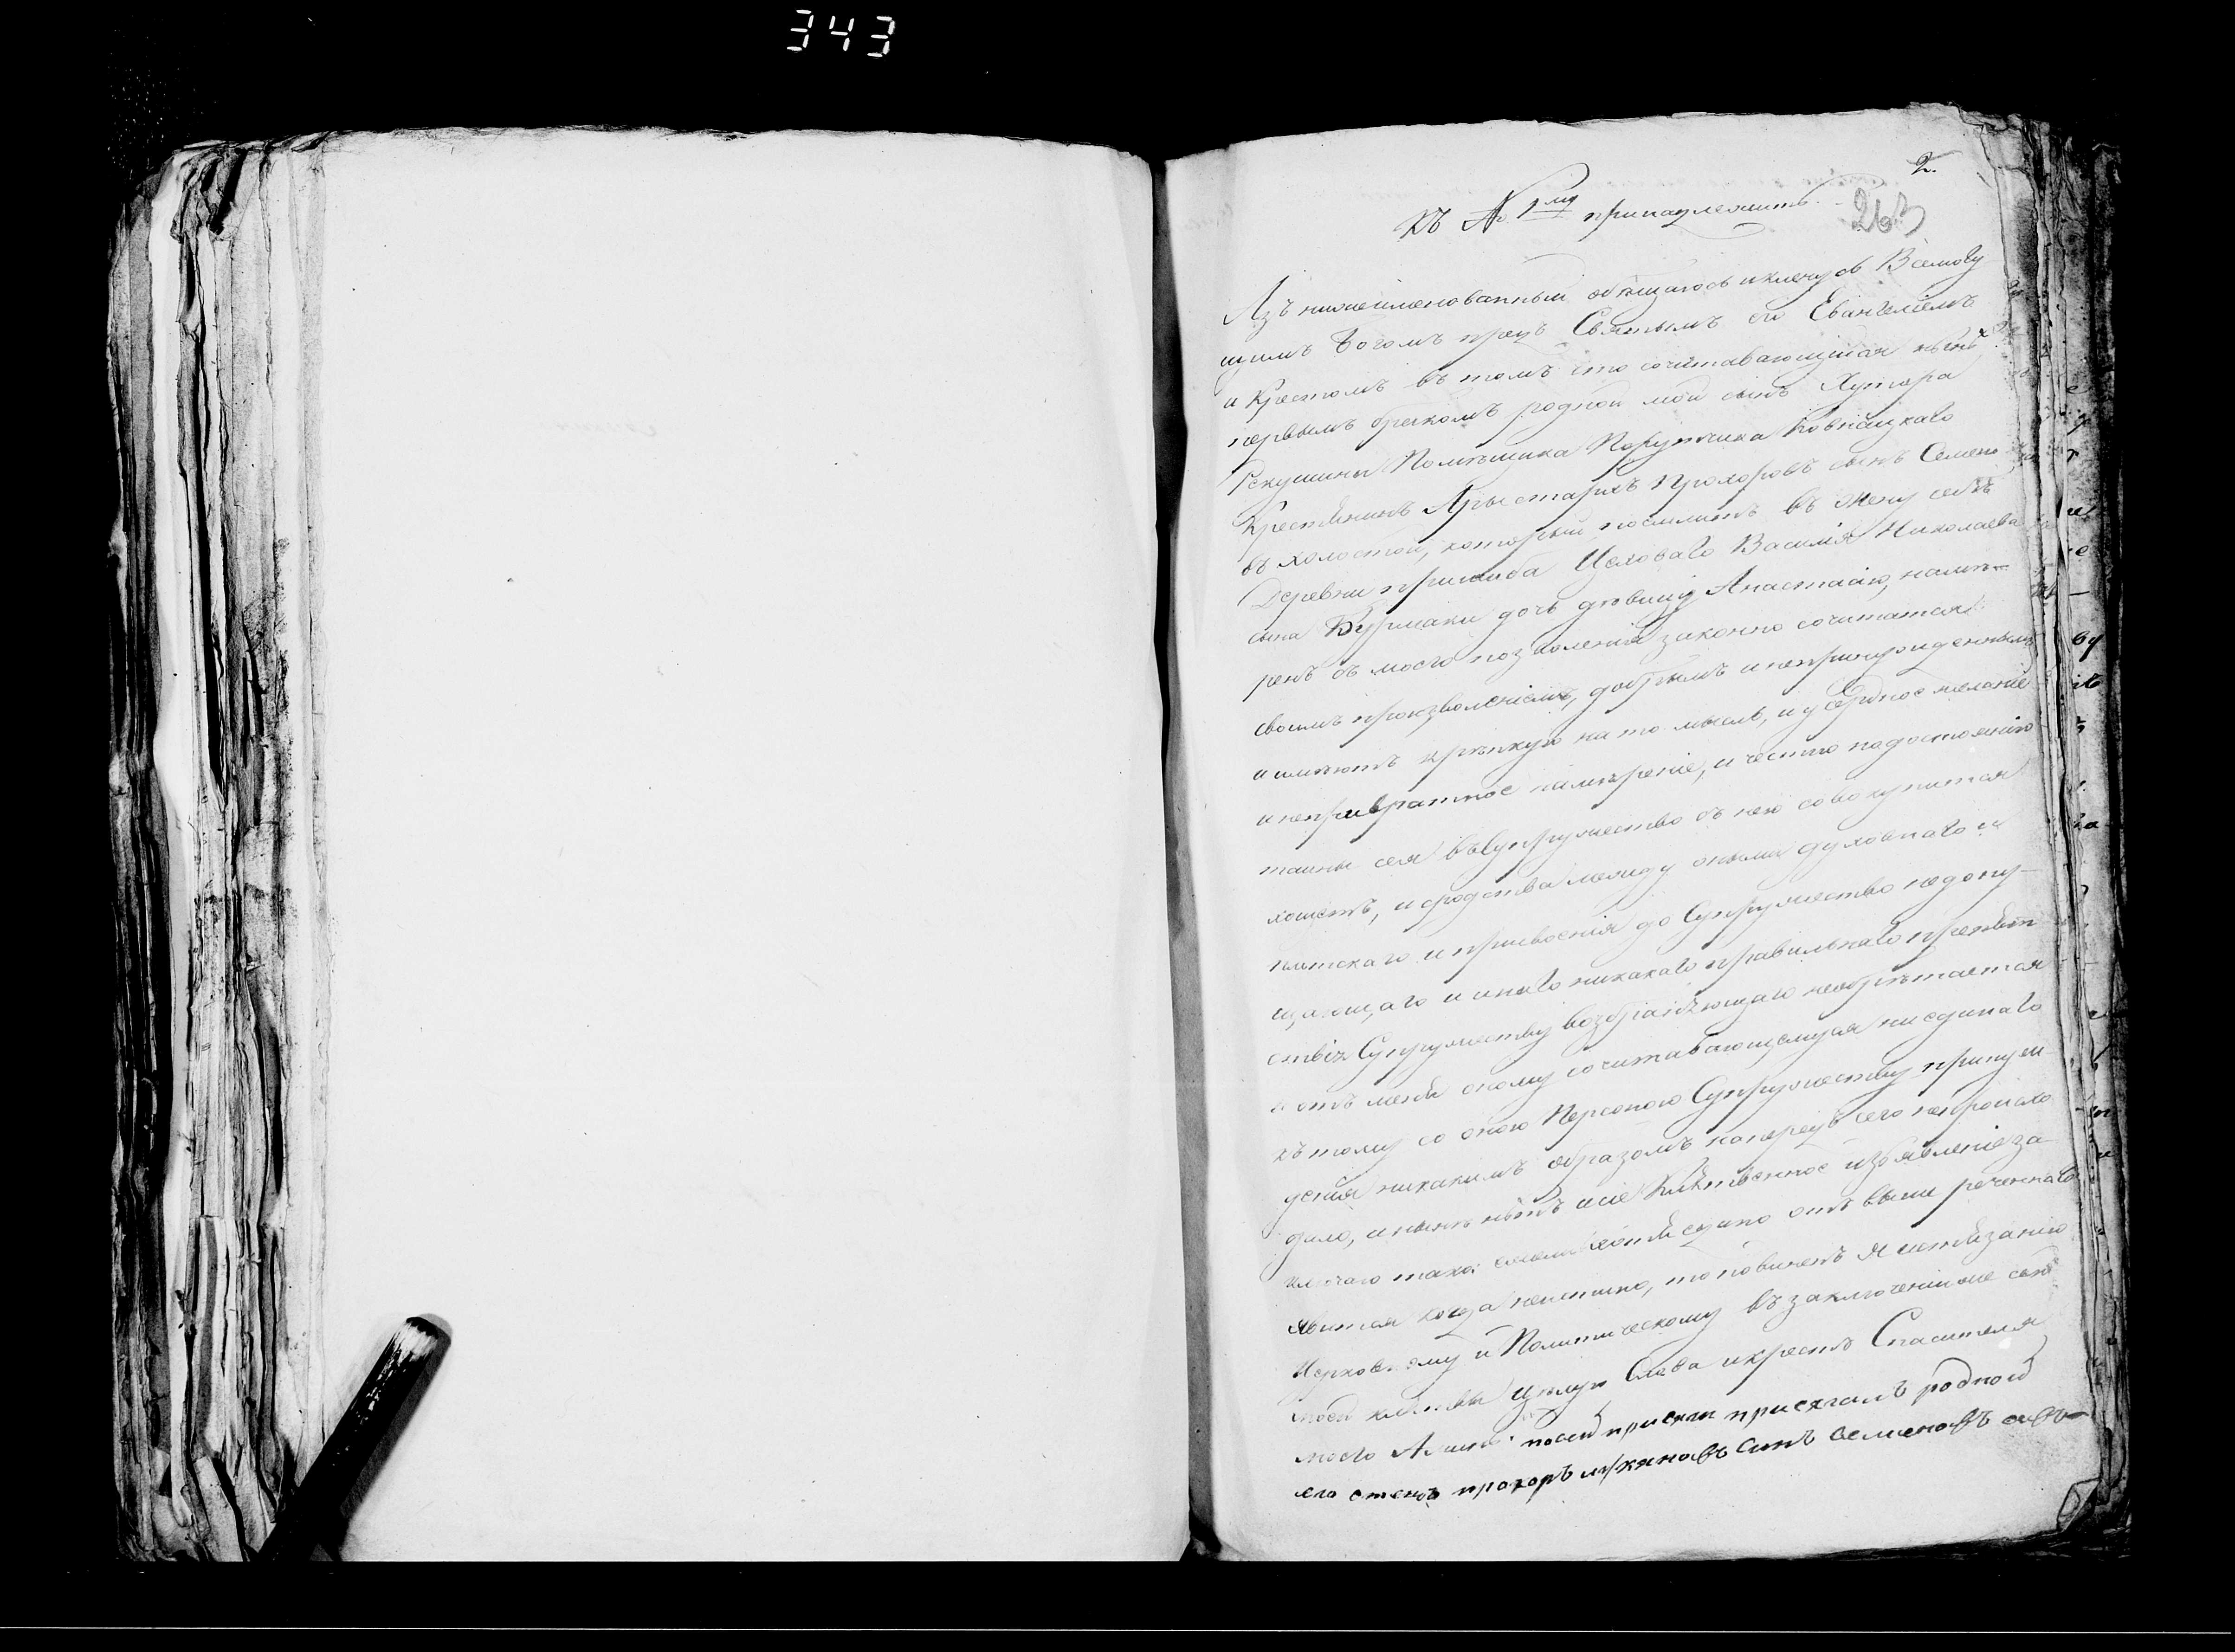 343
2.
къ № 1му принадлежитъ
263
Азъ нижеименованный обѣщаюсь и кленусь Всемогу
щимъ Богомъ предъ Святымъ его Евангеліемъ
и Крестомъ въ томъ что сочитавающійся нынѣ
первымъ бракомъ родной мой сынъ Хутора
Помѣщика Порутчика
Крестянинъ Арыстархъ Прохоровъ сынъ Семено
въ холостой, который поемлитъ въ жену себѣ
Деревни Василія Николаева
сына Бурмаки дочь дѣвицу Анастасію, намѣ-
ренъ съ моего позволенія законно сочитатся
своимъ произволеніемъ, добрымъ и непринужденнымъ
и имѣютъ крѣпкую на то мысль, и усердное желаніе
и непривратное намѣреніе, и честно по достоянію
тайны сея въ супружество съ нею совокупится
хощетъ, и сродства между оными духовнаго и
плотскаго и присвоенія до Супружество недопу-
щающаго и инаго никакаго правильнаго препятъ
ствія Супружеству возбраняющаго необрѣтается
и отъ меня оному сочитавающемуся ни единаго
къ тому со оною Персоною Супружеству принуж
денія никакимъ образомъ напередъ сего непроисхо
дило, и нынѣ нѣтъ и сіе Клятвенное изъявленіе за-
ключаю тако: выше реченнаго
явится когда неистинно, то повиненъ я истязанію
Церковному и Политическому въ заключеніи же сей
моей клятвы цѣлую Слова и крестъ Спасителя
моего Аминь. по сей присяги присягалъ родной
его отецъ прохоръ сынъ семеновъ